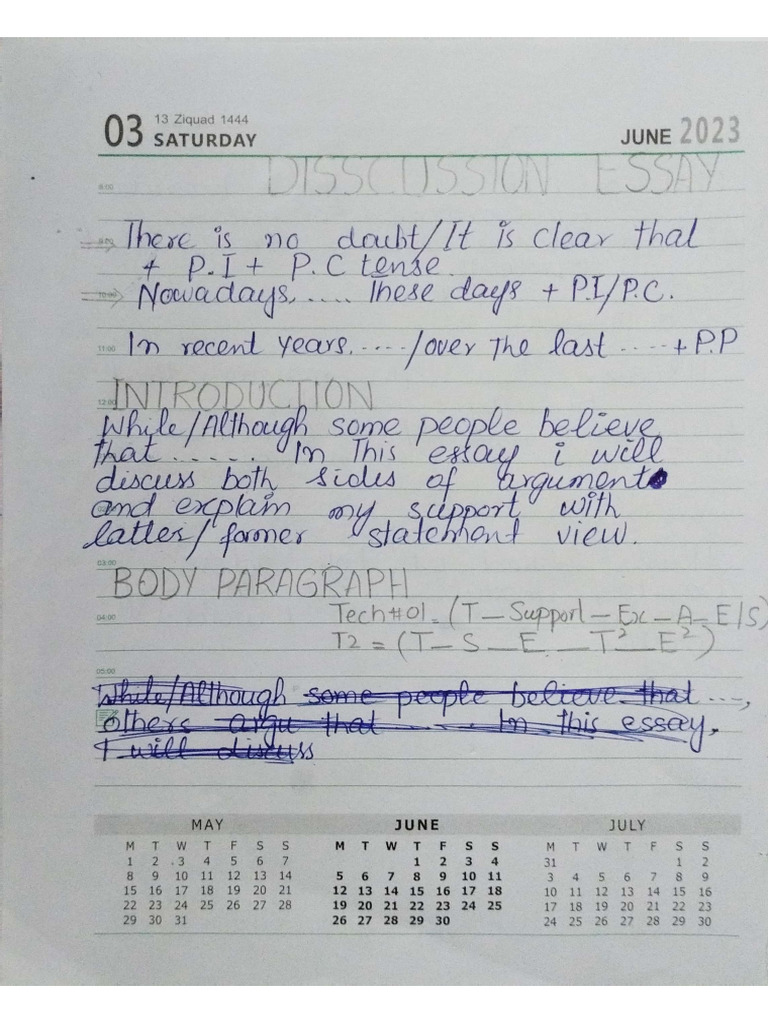 03 13 Ziquad 1444
SATURDAY
JUNE 2023
DISSCUSSION ESSAY
8:00
9:00 There is no doubt/It is clear that
+ P.I + P.C tense.
10:00 Nowadays,.... These days + P.I/P.C.
11:00 In recent years,..../over the last ....+P.P
12:00 INTRODUCTION
While/Although some people believe
that..... In This essay i will
discuss both sides of argument
and explain my support with
latter/former statement view.
03:00
BODY PARAGRAPH
04:00 Tech#01=(T-Support-Ex-A-E/S)
T2=(T-S-E-T²-E²)
05:00
While/Although some people believe that ...,
others argu that .... In this essay,
I will discuss
MAY
M T W T F S S
1 2 3 4 5 6 7
8 9 10 11 12 13 14
15 16 17 18 19 20 21
22 23 24 25 26 27 28
29 30 31
JUNE
M T W T F S S
1 2 3 4
5 6 7 8 9 10 11
12 13 14 15 16 17 18
19 20 21 22 23 24 25
26 27 28 29 30
JULY
M T W T F S S
31 1 2
3 4 5 6 7 8 9
10 11 12 13 14 15 16
17 18 19 20 21 22 23
24 25 26 27 28 29 30